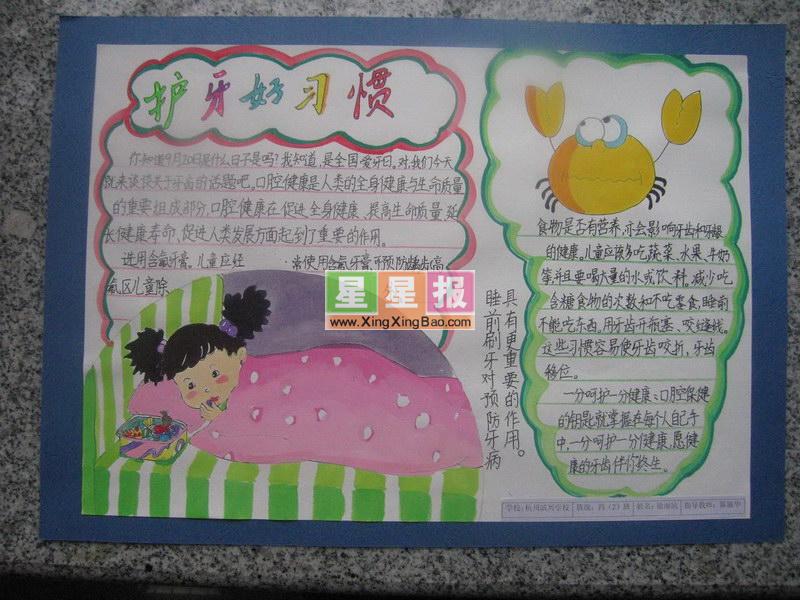 护牙好习惯
你知道9月20日是什么日不是吗?我知道,是全国爱牙日。对,我们今天
就来谈谈关于牙齿的话题吧。口腔健康是人类的全身健康与生命质量
的重要组成部分,口腔健康在促进全身健康、提高生命质量、延
长健康寿命、促进人类发展方面起到了重要的作用。
选用含氟牙膏。儿童应经常使用含氟牙膏可预防龋齿,高
氟区儿童除
星星报
www.XingXingBao.com
具有更重要的作用。
睡前刷牙对预防牙病
食物是否有营养,亦会影响牙齿和牙龈
的健康。儿童应该多吃蔬菜、水果、牛奶
等,并且要喝大量的水或饮料,减少吃
含糖食物的次数和不吃零食,睡前
不能吃东西,用牙齿开瓶塞、咬缝线,
这些习惯容易使牙齿咬折,牙齿
移位。
一分呵护一分健康:口腔保健
的钥匙就掌握在每个人自己手
中,一分呵护一分健康,愿健
康的牙齿伴你终生。
学校:杭州 学校 班级:四(2)班 姓名: 指导教师: